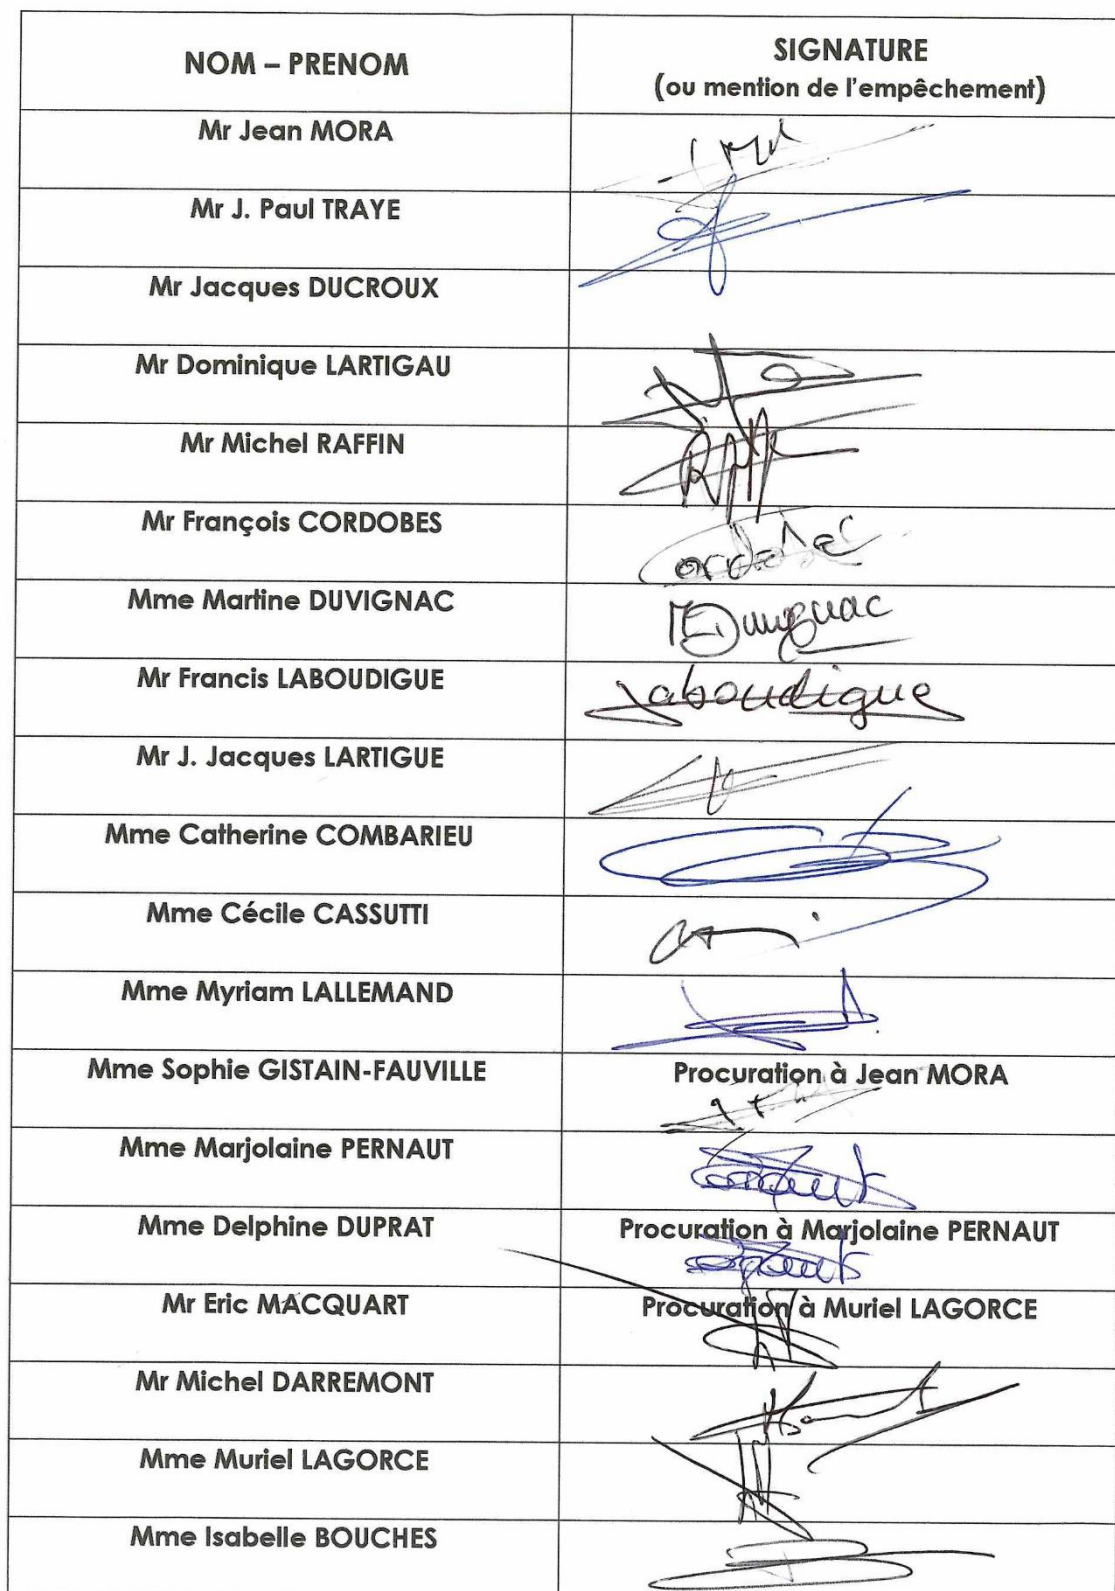 NOM – PRENOM
SIGNATURE
(ou mention de l'empêchement)
Mr Jean MORA
Mr J. Paul TRAYE
Mr Jacques DUCROUX
Mr Dominique LARTIGAU
Mr Michel RAFFIN
Mr François CORDOBES
Cordobes
Mme Martine DUVIGNAC
MDuvignac
Mr Francis LABOUDIGUE
Laboudigue
Mr J. Jacques LARTIGUE
Mme Catherine COMBARIEU
Mme Cécile CASSUTTI
Mme Myriam LALLEMAND
Mme Sophie GISTAIN-FAUVILLE
Procuration à Jean MORA
Mme Marjolaine PERNAUT
Mme Delphine DUPRAT
Procuration à Marjolaine PERNAUT
Mr Eric MACQUART
Procuration à Muriel LAGORCE
Mr Michel DARREMONT
Mme Muriel LAGORCE
Mme Isabelle BOUCHES